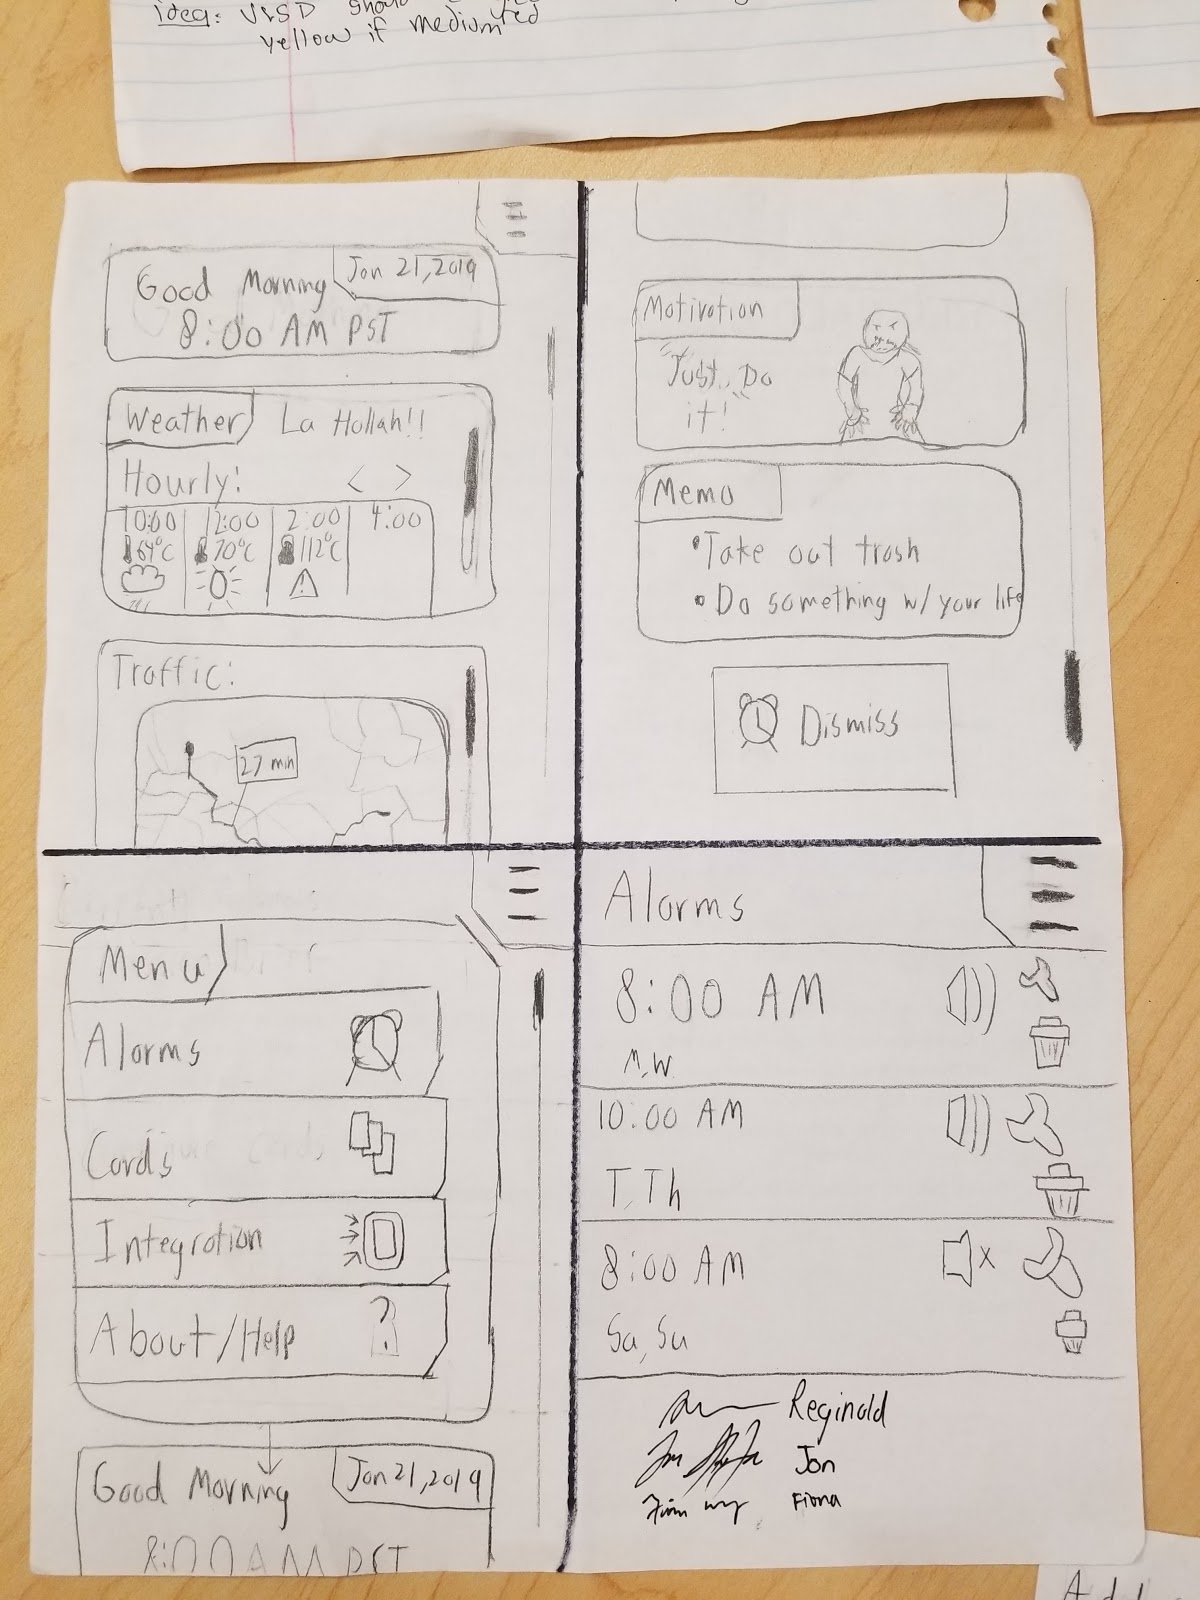 idea: V&SD should
yellow if medium ted
Good Morning
Jan 21, 2019
8:00 AM PST
Weather
La Hollah!!
Hourly: < >
10:00 12:00 2:00 4:00
64°C 70°C 112°C
Traffic:
27 min
Motivation
"Just Do
it!"
Memo
• Take out trash
• Do something w/ your life
Dismiss
Menu
Alarms
Cards
Integration
About/Help
Good Morning
Jan 21, 2019
8:00 AM PST
Alarms
8:00 AM
M, W
10:00 AM
T, Th
8:00 AM
x
Sa, Su
Reginald
Jon
Fiona